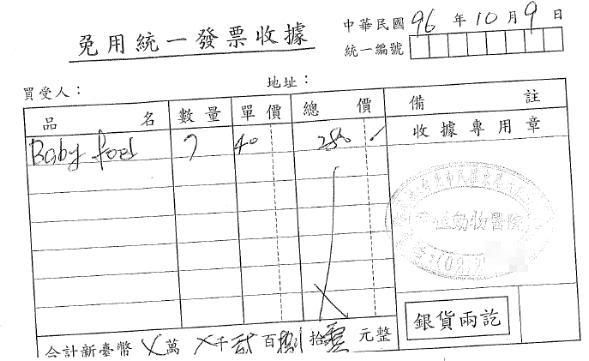 免用統一發票收據
中華民國 96 年 10 月 9 日
統一編號
買受人： 地址：
品名 數量 單價 總價 備註
收據專用章
Baby 7 40 280
合計新臺幣 X 萬 X 千 貳 百 捌 拾 零 元整
銀貨兩訖